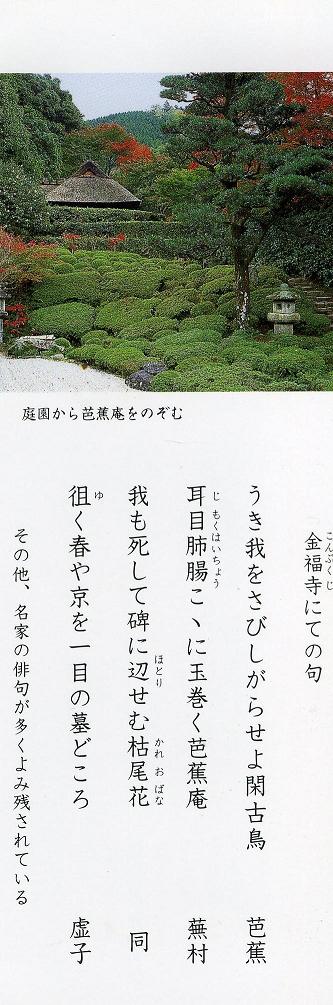 庭園から芭蕉庵をのぞむ
金福寺にての句
こんぷくじ
うき我をさびしがらせよ閑古鳥 芭蕉
耳目肺腸こゝに玉巻く芭蕉庵 蕪村
じもくはいちょう
我も死して碑に辺せむ枯尾花 同
ほとり
かれおばな
徂く春や京を一目の墓どころ 虚子
ゆ
その他、名家の俳句が多くよみ残されている